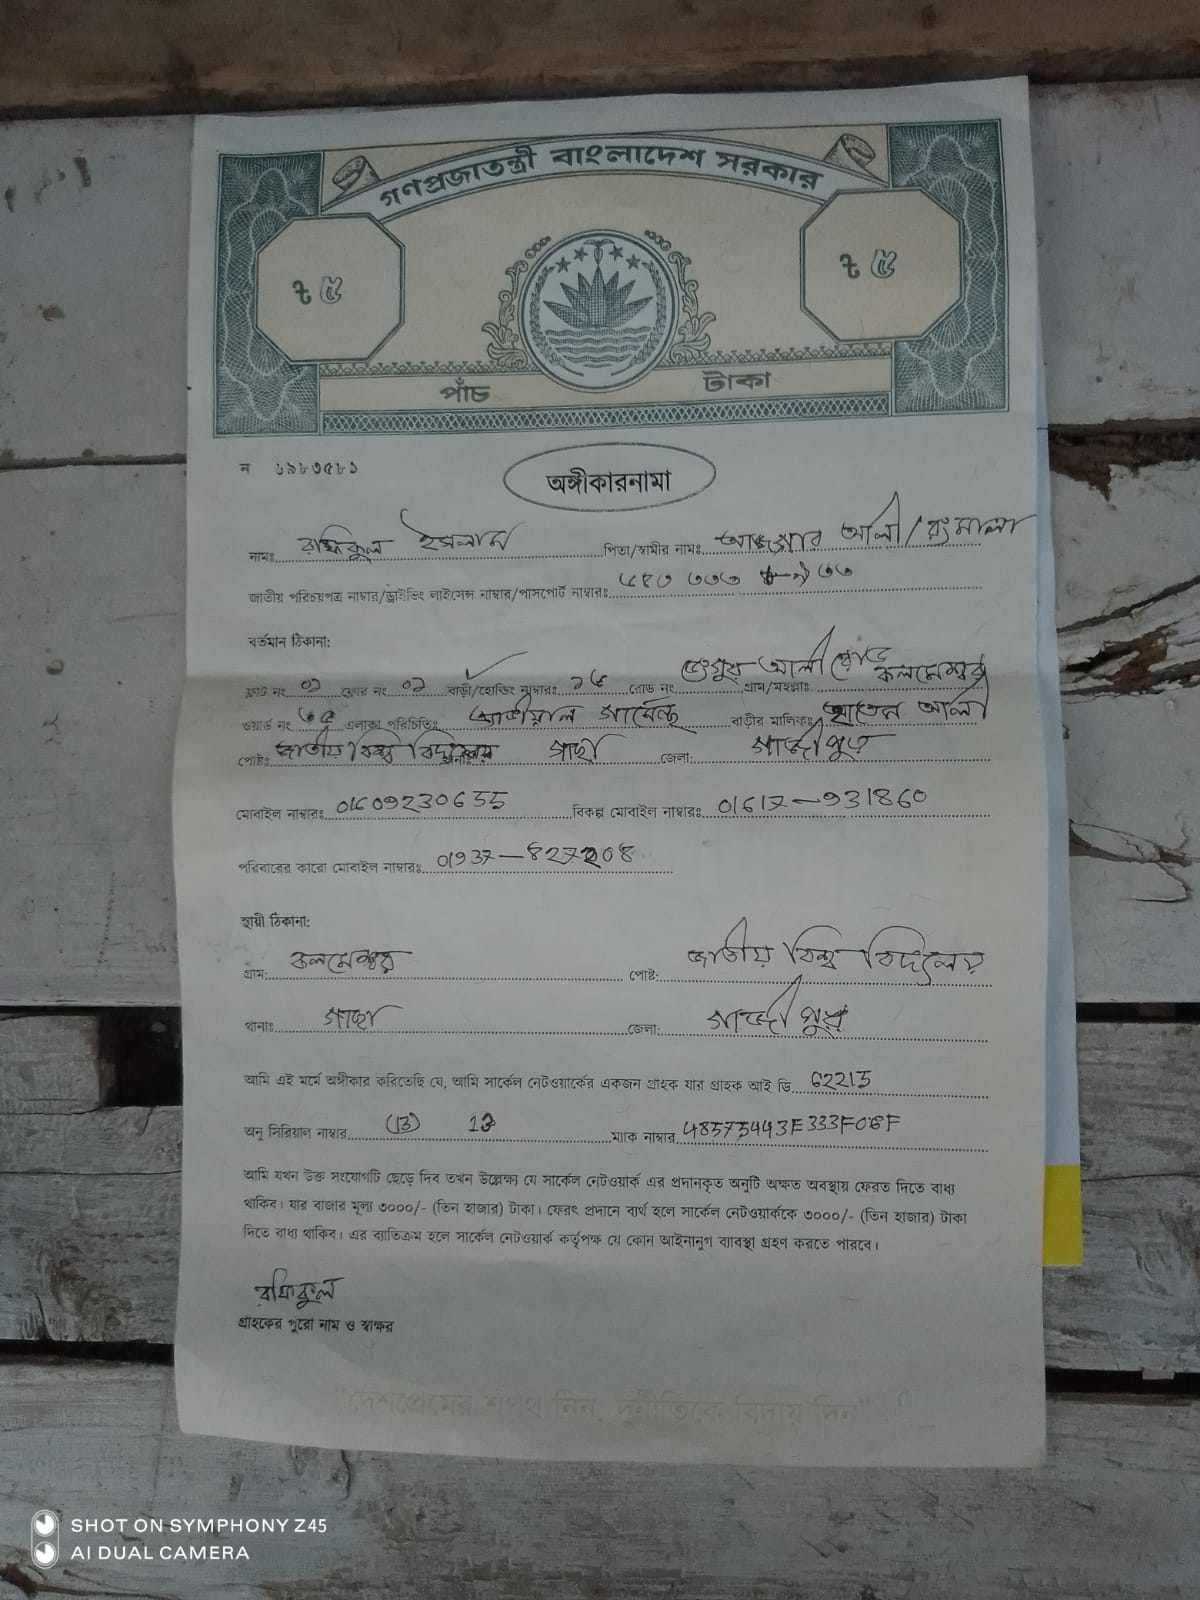 গণপ্রজাতন্ত্রী বাংলাদেশ সরকার
৳ ৫
৳ ৫
পাঁচ টাকা
ন ৬৯৮৩৫৮১
অঙ্গীকারনামা
নামঃ রফিকুল ইসলাম পিতা/স্বামীর নামঃ আজগার আলী/রংমালা
জাতীয় পরিচয়পত্র নাম্বার/ড্রাইভিং লাইসেন্স নাম্বার/পাসপোর্ট নাম্বারঃ
বর্তমান ঠিকানা:
ফ্লাট নং ০১ ফ্লোর নং ০১ বাড়ী/হোল্ডিং নাম্বারঃ ১৫ রোড নং আলী রোড গ্রাম/মহল্লাঃ কলমেশ্বর
ওয়ার্ড নং ৩৫ এলাকা পরিচিতিঃ গার্মেন্ট বাড়ীর মালিকঃ হাতেন আলী
পোষ্টঃ জাতীয় বিশ্ব বিদ্যালয় থানাঃ গাছা জেলা: গাজীপুর
মোবাইল নাম্বারঃ 01609230655 বিকল্প মোবাইল নাম্বারঃ 01617-931860
পরিবারের কারো মোবাইল নাম্বারঃ 01937-827208
স্থায়ী ঠিকানা:
গ্রাম: কলমেশ্বর পোষ্ট: জাতীয় বিশ্ব বিদ্যালয়
থানাঃ গাছা জেলা: গাজীপুর
আমি এই মর্মে অঙ্গীকার করিতেছি যে, আমি সার্কেল নেটওয়ার্কের একজন গ্রাহক যার গ্রাহক আই ডি 62215
অনু সিরিয়াল নাম্বার (13) 13 ম্যাক নাম্বার 48575443F333F06F
আমি যখন উক্ত সংযোগটি ছেড়ে দিব তখন উল্লেক্ষ্য যে সার্কেল নেটওয়ার্ক এর প্রদানকৃত অনুটি অক্ষত অবস্থায় ফেরত দিতে বাধ্য
থাকিব। যার বাজার মূল্য ৩০০০/- (তিন হাজার) টাকা। ফেরৎ প্রদানে ব্যর্থ হলে সার্কেল নেটওয়ার্ককে ৩০০০/- (তিন হাজার) টাকা
দিতে বাধ্য থাকিব। এর ব্যাতিক্রম হলে সার্কেল নেটওয়ার্ক কর্তৃপক্ষ যে কোন আইনানুগ ব্যাবস্থা গ্রহণ করতে পারবে।
রফিকুল
গ্রাহকের পুরো নাম ও স্বাক্ষর
"দেশপ্রেমের শপথ নিন, দুর্নীতিকে বিদায় দিন"
SHOT ON SYMPHONY Z45
AI DUAL CAMERA